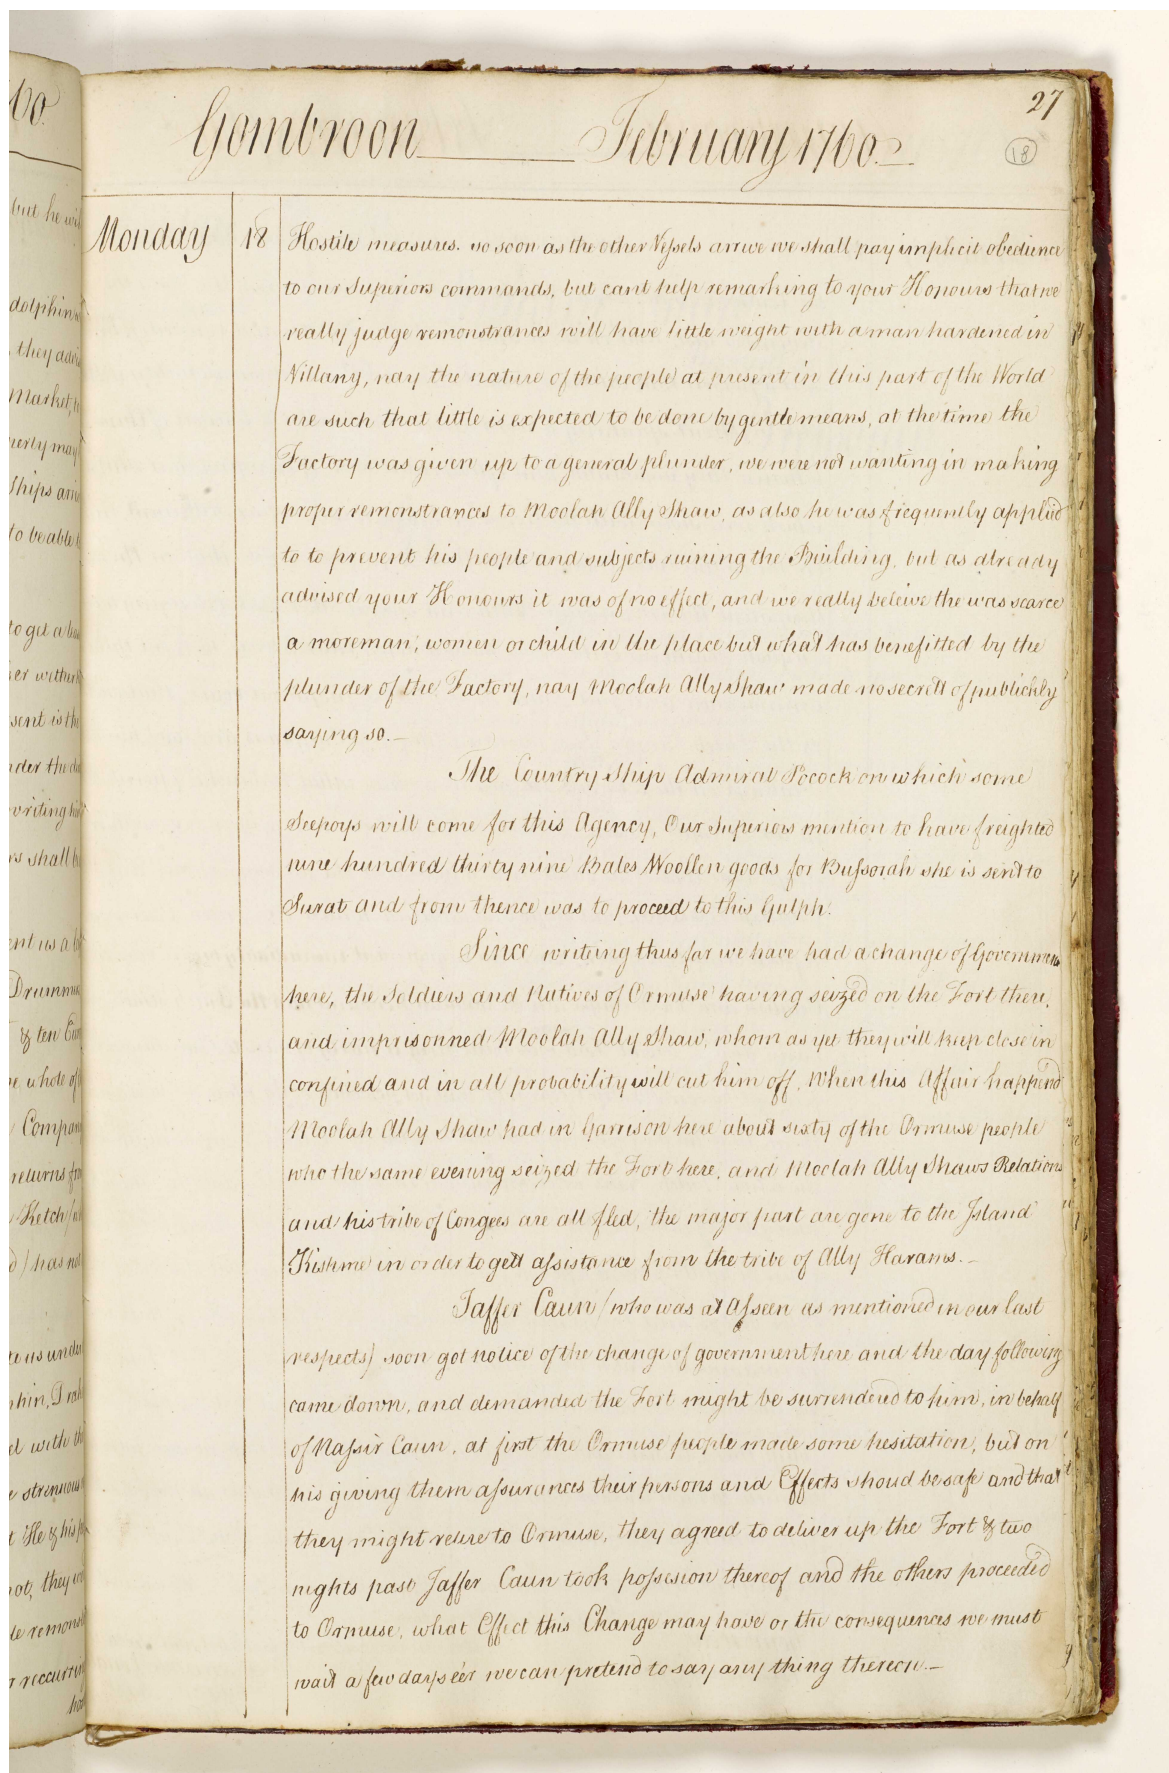 27
18
Gombroon February 1760.
Monday 18 Hostile measures. so soon as the other Vessels arrive we shall pay implicit obedience
to our Superiors commands, but cant help remarking to your Honours that we
really judge remonstrances will have little weight with a man hardened in
Villany, nay the nature of the people at present in this part of the World
are such that little is expected to be done by gentle means, at the time the
Factory was given up to a general plunder, we were not wanting in making
proper remonstrances to Moolah Ally Shaw, as also he was frequently applied
to to prevent his people and subjects ruining the Building. but as already
advised your Honours it was of no effect, and we really beleive the was scarce
a more man, women or child in the place but what has benefitted by the
plunder of the Factory, nay Moolah Ally Shaw made no secrett of publickly
saying so.—
The Country Ship Admiral Pocock on which some
Seepoys will come for this Agency, Our Superiors mention to have freighted
nine hundred thirty nine Bales Woollen goods for Bussorah she is sent to
Surat and from thence was to proceed to this Gulph.
Since writeing thus far we have had a change of Government
here, the Soldiers and Natives of Ormuse having seized on the Fort there,
and imprisonned Moolah Ally Shaw, whom as yet they will keep close in
confined and in all probability will cut him off, When this Affair happend
Moolah Ally Shaw had in Garrison here about sixty of the Ormuse people
who the same evening seized the Fort here, and Moolah Ally Shaws Relations
and his tribe of Congees are all fled, the major part are gone to the Island
Kishme in order to gett assistance from the tribe of Ally Harams.—
Jaffer Caun (who was at Asseen as mentioned in our last
respects) soon got notice of the change of government here and the day following
came down, and demanded the Fort might be surrendered to him, in behalf
of Nassir Caun, at first the Ormuse people made some hesitation, but on
his giving them assurances their persons and Effects shoud be safe and that
they might retire to Ormuse, they agreed to deliver up the Fort & two
nights past Jaffer Caun took possesion thereof and the others proceeded
to Ormuse, what Effect this Change may have or the consequences we must
wait a few days e'er we can pretend to say any thing thereon.—